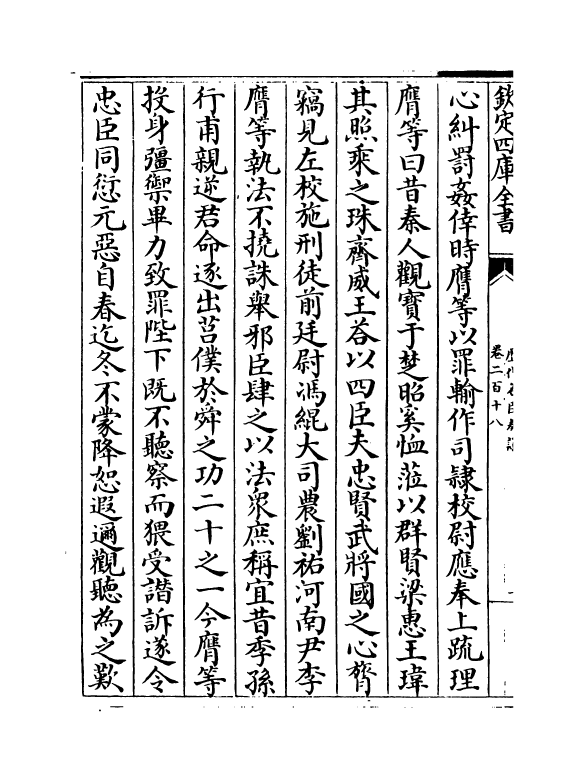 欽定四庫全書
卷二百十八
心糾罰姦倖時膺等以罪輸作司隷校尉應奉上疏理
膺等曰昔秦人觀寶于楚昭奚恤蒞以群賢梁惠王瑋
其照乘之珠齊威王荅以四臣夫忠賢武將國之心膂
竊見左校施刑徒前廷尉馮緄大司農劉祐河南尹李
膺等執法不撓誅舉邪臣肆之以法衆庶稱宜昔季孫
行甫親逆君命逐出莒僕於舜之功二十之一今膺等
投身彊禦畢力致罪陛下既不聽察而猥受譖訴遂令
忠臣同愆元惡自春迄冬不蒙降恕遐邇觀聽為之歎